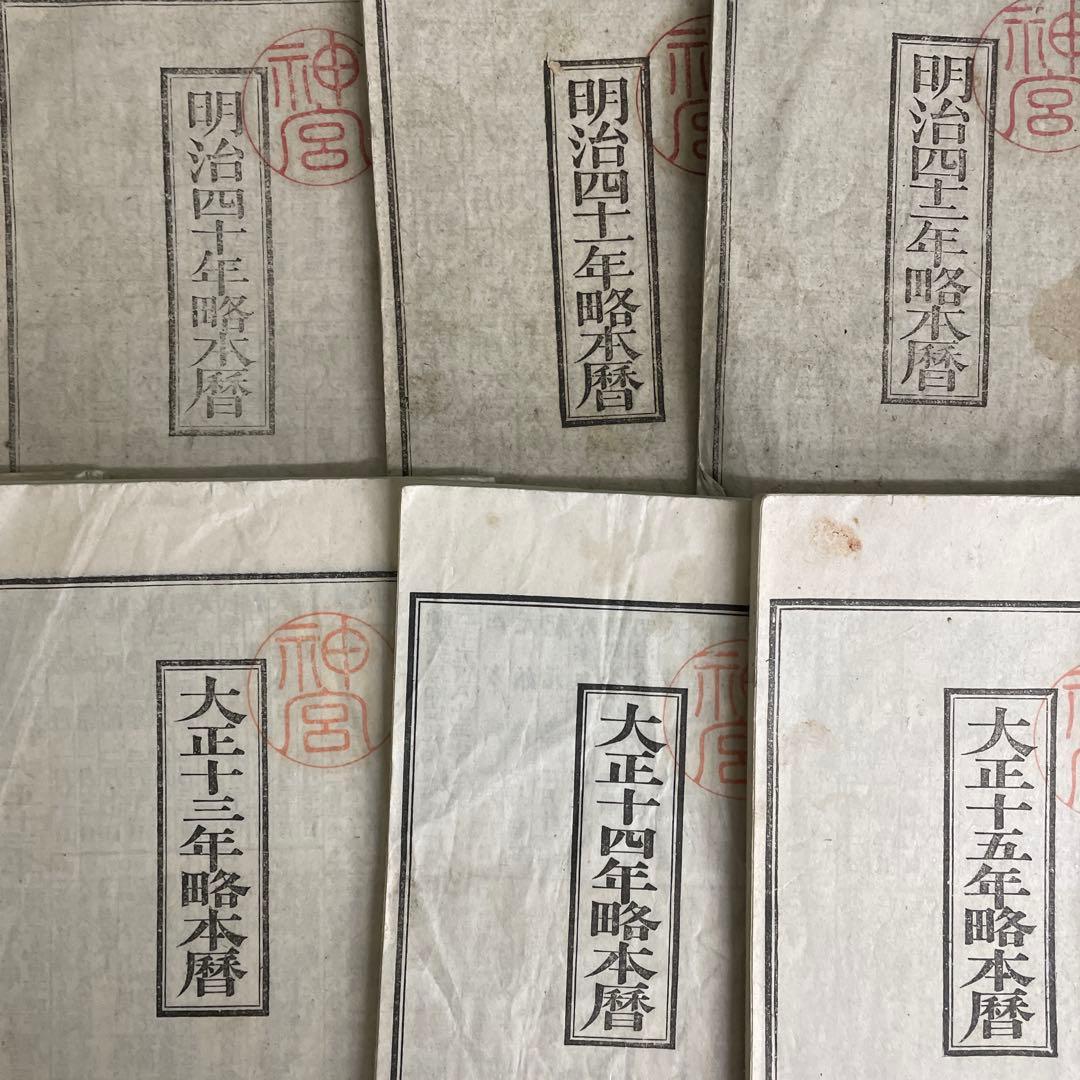 明治四十年略本暦
神宮
明治四十一年略本暦
神宮
明治四十二年略本暦
神宮
大正十三年略本暦
神宮
大正十四年略本暦
神宮
大正十五年略本暦